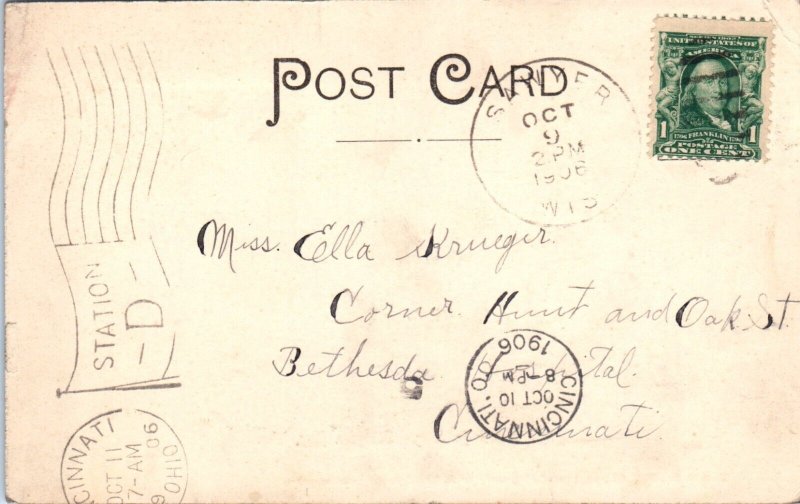 POST CARD
SAWYER
OCT
9
2 PM
1906
WIS
UNITED STATES OF
AMERICA
1 FRANKLIN 1
POSTAGE
ONE CENT
Miss. Ella Krueger.
Corner. Hunt and Oak St.
Bethesda Hospital.
Cincinnati.
STATION
-D-
CINCINNATI, O.
OCT 10
8-PM
1906
CINNATI
OHIO
OCT 11
7-AM
06